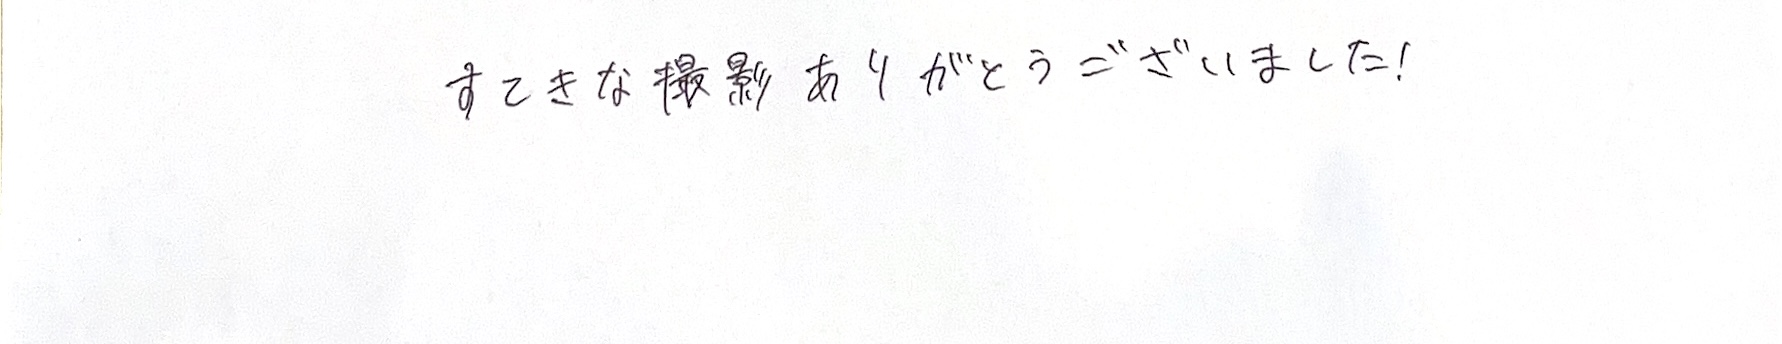 すてきな撮影ありがとうございました!